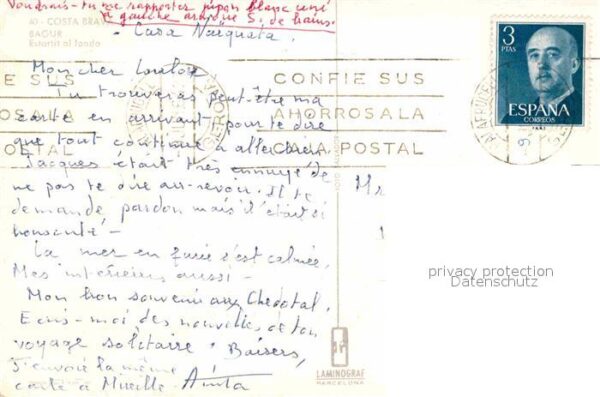 Voudrais-tu me rapporter jupon blanc uni
à gauche armoire S. de bains.
40 - COSTA BRAVA
BAGUR
Estartit al fondo
- Casa
Mon cher Loulou
Tu trouveras peut-être ma
carte en arrivant pour te dire
que tout continue à aller bien.
Jacques était très ennuyé de
ne pas te dire au-revoir. Il te
demande pardon mais il était si
-
La mer en furie s'est calmée.
Mes intérieurs aussi -
Mon bon souvenir aux
Ecris-moi des nouvelles de ton
voyage solitaire. Baisers,
J'envoie la même
carte à Mireille
CONFIE SUS
AHORROS A LA
CAJA POSTAL
3
PTAS
ESPAÑA
CORREOS
Mr
privacy protection
Datenschutz
LAMINOGRAF
BARCELONA